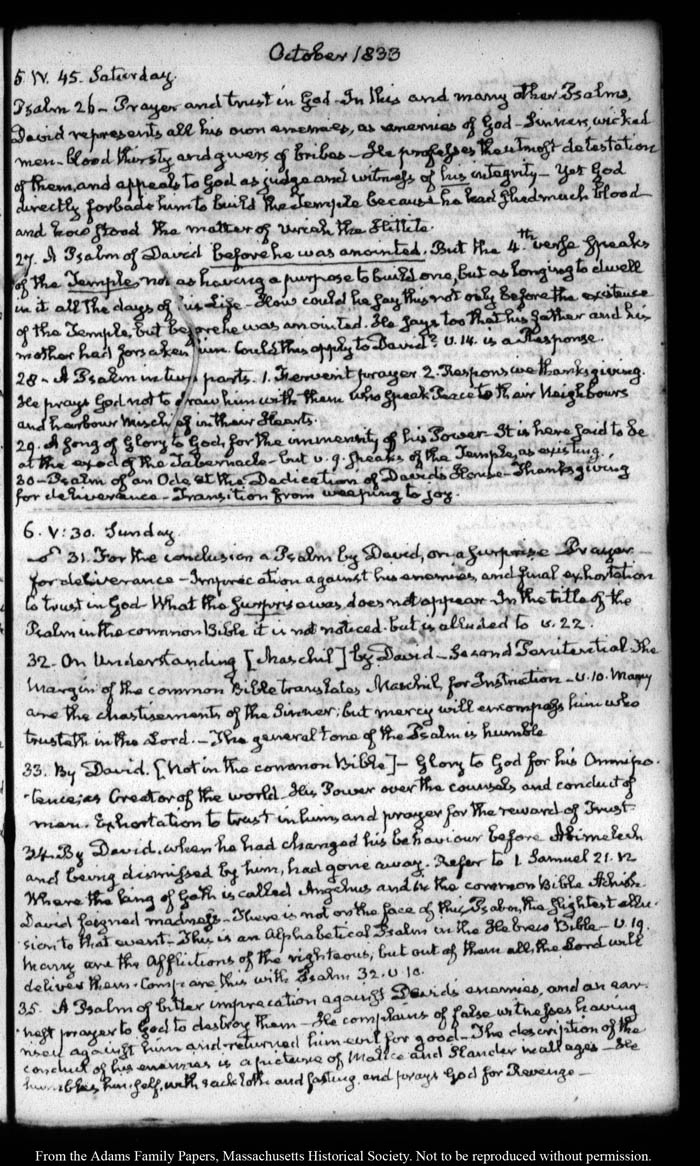 October 1833
5. IV. 45. Saturday.
Psalm 26 – Prayer and trust in God – In this and many other Psalms,
David represents all his own enemies, as enemies of God – Sinners, wicked
men – blood thirsty and givers of bribes – He professes the utmost detestation
of them, and appeals to God as judge and witness of his integrity – Yet God
directly forbade him to build the Temple because he had shed much blood
and how stood the matter of Uriah the Hittite.
27. A Psalm of David before he was anointed. But the 4.th verse speaks
of the Temple, not as having a purpose to build one, but as longing to dwell
in it all the days of his Life – How could he say this not only before the existence
of the Temple, but before he was anointed. He says too that his Father and his
mother had forsaken him. Could this apply to David? v. 14. is a Response.
28 – A Psalm in two parts. 1. Fervent prayer 2. Responsive thanksgiving.
He prays God not to draw him with them who speak Peace to their Neighbours
and harbour Mischief in their Hearts.
29. A song of Glory to God, for the immensity of his Power – It is here said to be
at the exod of the Tabernacle – but v. 9. speaks of the Temple, as existing.
30 – Psalm of an Ode, at the Dedication of David's House – Thanksgiving
for deliverance – Transition from weeping to joy.
6. V: 30. Sunday.
31. For the conclusion a Psalm by David, on a surprise Prayer
for deliverance – Imprecation against his enemies, and final exhortation
to trust in God What the surprise was does not appear – In the title of the
Psalm in the common Bible it is not noticed – but is alluded to v. 22.
32. On Understanding [Maschil] by David – Second Penitential The
Margin of the common Bible translates Maschil, for Instruction – v. 10. Many
are the chastisements of the Sinner; but mercy will encompass him who
trusteth in the Lord. – The general tone of the Psalm is humble
33. By David. [Not in the common Bible] – Glory to God for his Omnipo-
tence; as Creator of the world. His Power over the counsels and conduct of
men. Exhortation to trust in him, and prayer for the reward of Trust
34. By David. when he had changed his behaviour before Abimelech
and being dismissed by him, had gone away. Refer to 1. Samuel 21. 12
Where the king of Gath is called Anghus and in the common Bible Achish.
David feigned madness – There is not on the face of this Psalm, the slightest allu-
sion to that event – This is an Alphabetical Psalm in the Hebrew Bible – v. 19.
Many are the Afflictions of the righteous; but out of them all, the Lord will
deliver them. Compare this with Psalm 32. v. 10.
35. A Psalm of bitter imprecation against David's enemies, and an ear-
nest prayer to God to destroy them – He complains of false witnesses having
risen against him and returned him evil for good – The description of the
conduct of his enemies is a picture of Malice and Slander in all ages – He
humbles himself, with sackcloth and fasting, and prays God for Revenge –
From the Adams Family Papers, Massachusetts Historical Society. Not to be reproduced without permission.